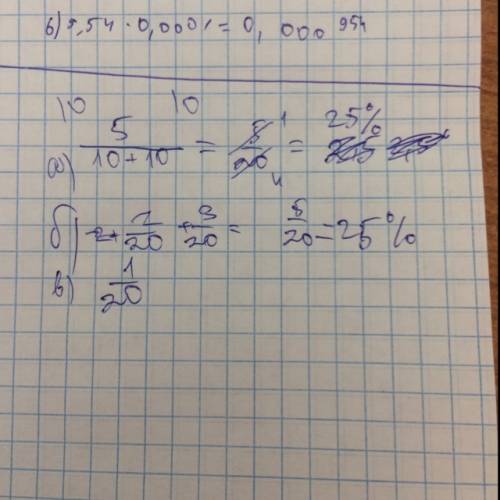 б) 9,54 · 0,0001 = 0, 000 954
10 10
а) 5/(10+10) = 5/20 = 25%
б) 2/20 + 3/20 = 5/20 = 25%
в) 1/20